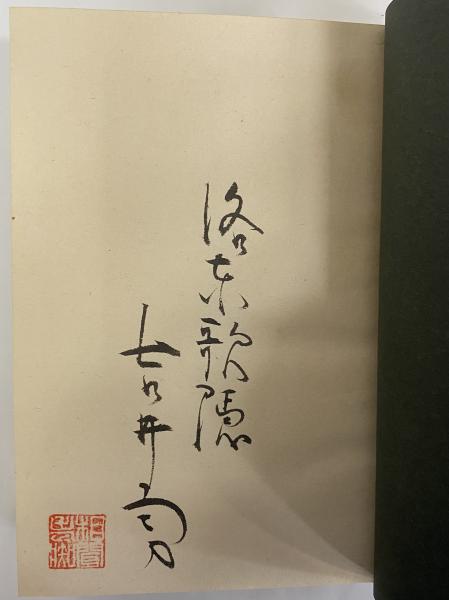 洛東歌隠
吉井勇